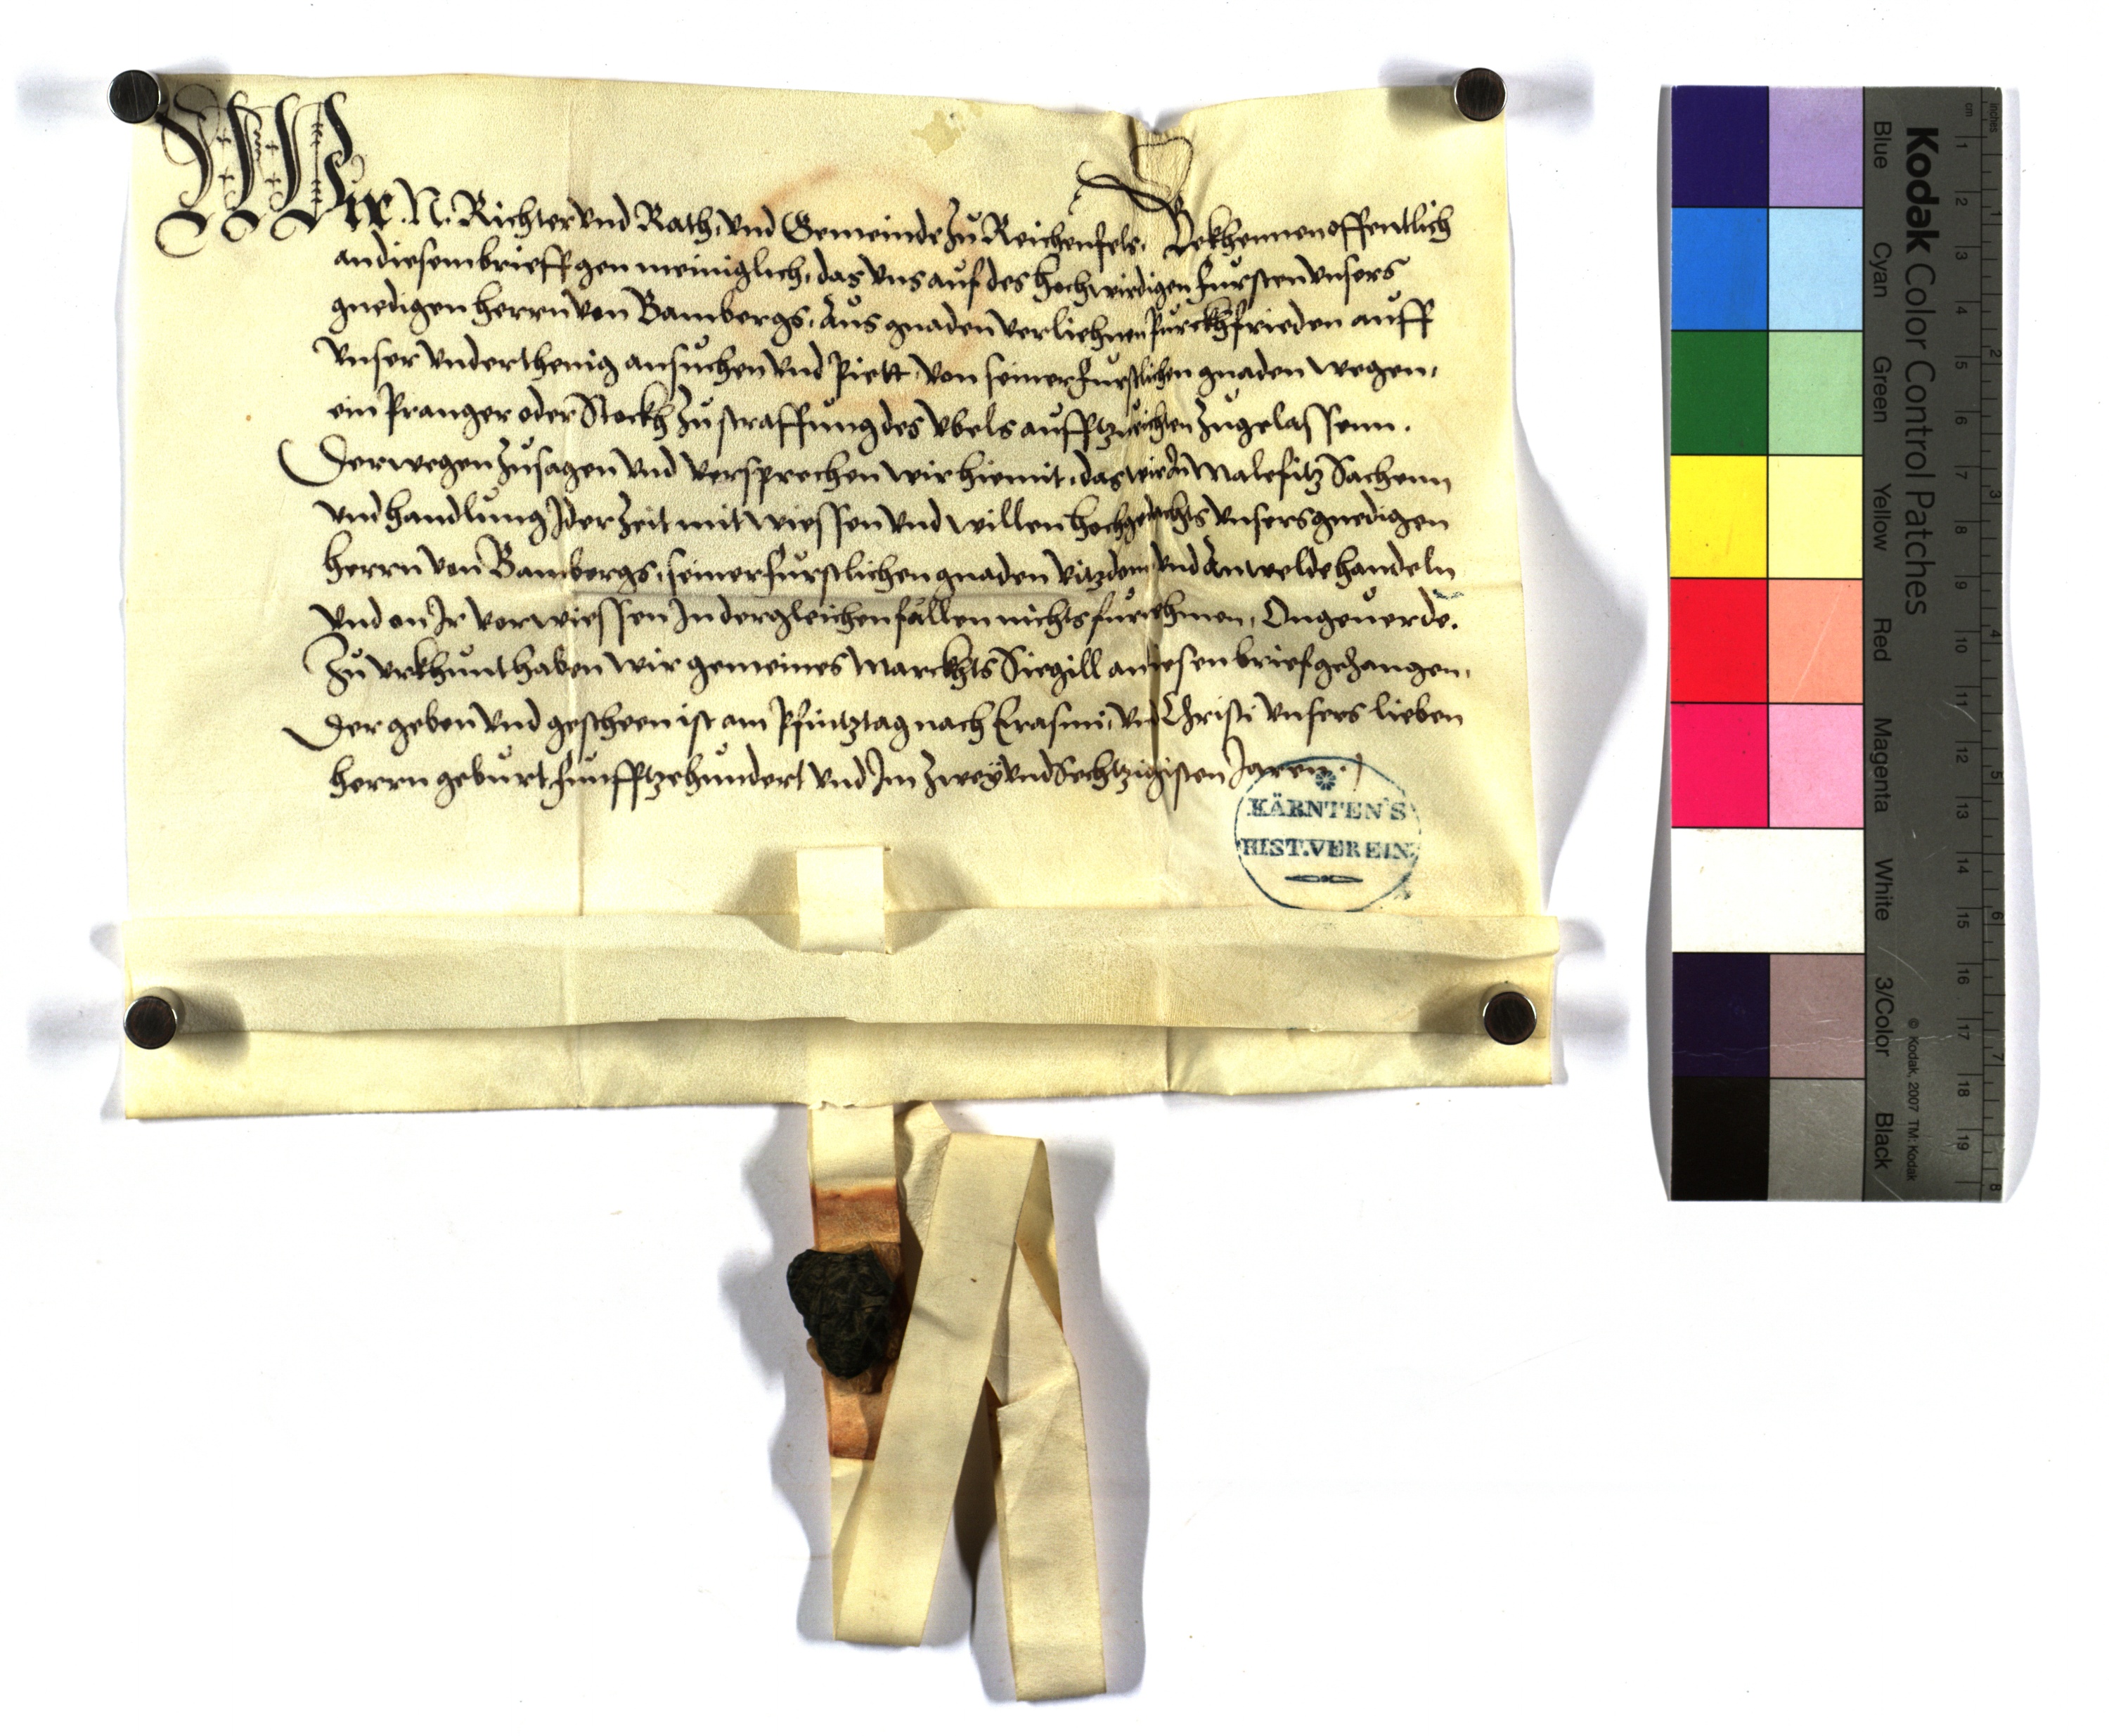 Wir .N. Richter vnd Rath, vnd Gemeinde zu Reichenfels, Bekhennen offentlich
an diesem brieff gen meiniglich, das vns auf des hochwirdigen fursten vnsers
gnedigen herrn von Bambergs, Aus gnaden verliehnen purckhfrieden auff
vnser vnderthenig ansuchen vnd piett, von seiner furstlichen gnaden wegen,
ein Pranger oder Stockh zu straffung des vbels auffzurichten zugelassenn.
Derwegen zusagen vnd versprechen wir hiemit, das wir In Malefitz Sachenn
vnd handlung Jder Zeit mit wiessen vnd willen hochgedachts vnsers gnedigen
herrn von Bambergs, seiner furstlichen gnaden vitzdom vnd Anwelde handeln
vnd on Ir vorwiessen In dergleichen fällen nichts furnehmen, Ongeuerde.
Zu vrkhunt haben wir gemeines Marckhts Siegill an diesen brief gehangen,
Der geben vnd gescheen ist am Pfintztag nach Erasmi, vnd Christi vnsers lieben
herrn geburt, funfftzehundert vnd Im zweÿ vnd Sechtzigisten Jaren.
KÄRNTEN'S
HIST. VEREIN
Kodak Color Control Patches
Blue Cyan Green Yellow Red Magenta White 3/Color Black
© Kodak, 2007 TM: Kodak
cm 1 2 3 4 5 6 7 8 9 10 11 12 13 14 15 16 17 18 19
inches 1 2 3 4 5 6 7 8